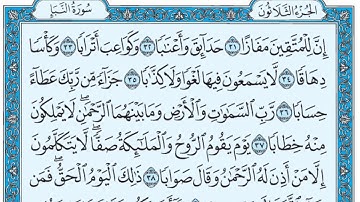 سُورَةُ النَّبَإِ الجُزْءُ الثَّلَاثُونَ
إِنَّ لِلْمُتَّقِينَ مَفَازًا ٣١ حَدَآئِقَ وَأَعْنَٰبًا ٣٢ وَكَوَاعِبَ أَتْرَابًا ٣٣ وَكَأْسًا
دِهَاقًا ٣٤ لَّا يَسْمَعُونَ فِيهَا لَغْوًا وَلَا كِذَّٰبًا ٣٥ جَزَآءً مِّن رَّبِّكَ عَطَآءً
حِسَابًا ٣٦ رَّبِّ السَّمَٰوَٰتِ وَالْأَرْضِ وَمَا بَيْنَهُمَا الرَّحْمَٰنِ ۖ لَا يَمْلِكُونَ
مِنْهُ خِطَابًا ٣٧ يَوْمَ يَقُومُ الرُّوحُ وَالْمَلَٰٓئِكَةُ صَفًّا ۖ لَّا يَتَكَلَّمُونَ
إِلَّا مَنْ أَذِنَ لَهُ الرَّحْمَٰنُ وَقَالَ صَوَابًا ٣٨ ذَٰلِكَ الْيَوْمُ الْحَقُّ ۖ فَمَن